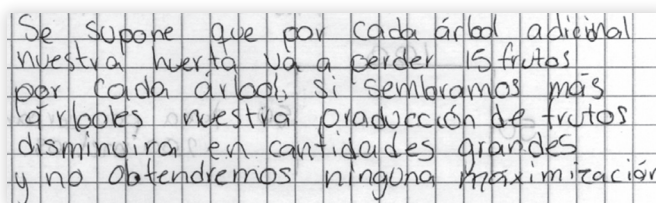 Se supone que por cada árbol adicional
nuestra huerta va a perder 15 frutos
por cada árbol, si sembramos más
árboles nuestra producción de frutos
disminuira en cantidades grandes
y no obtendremos ninguna maximización